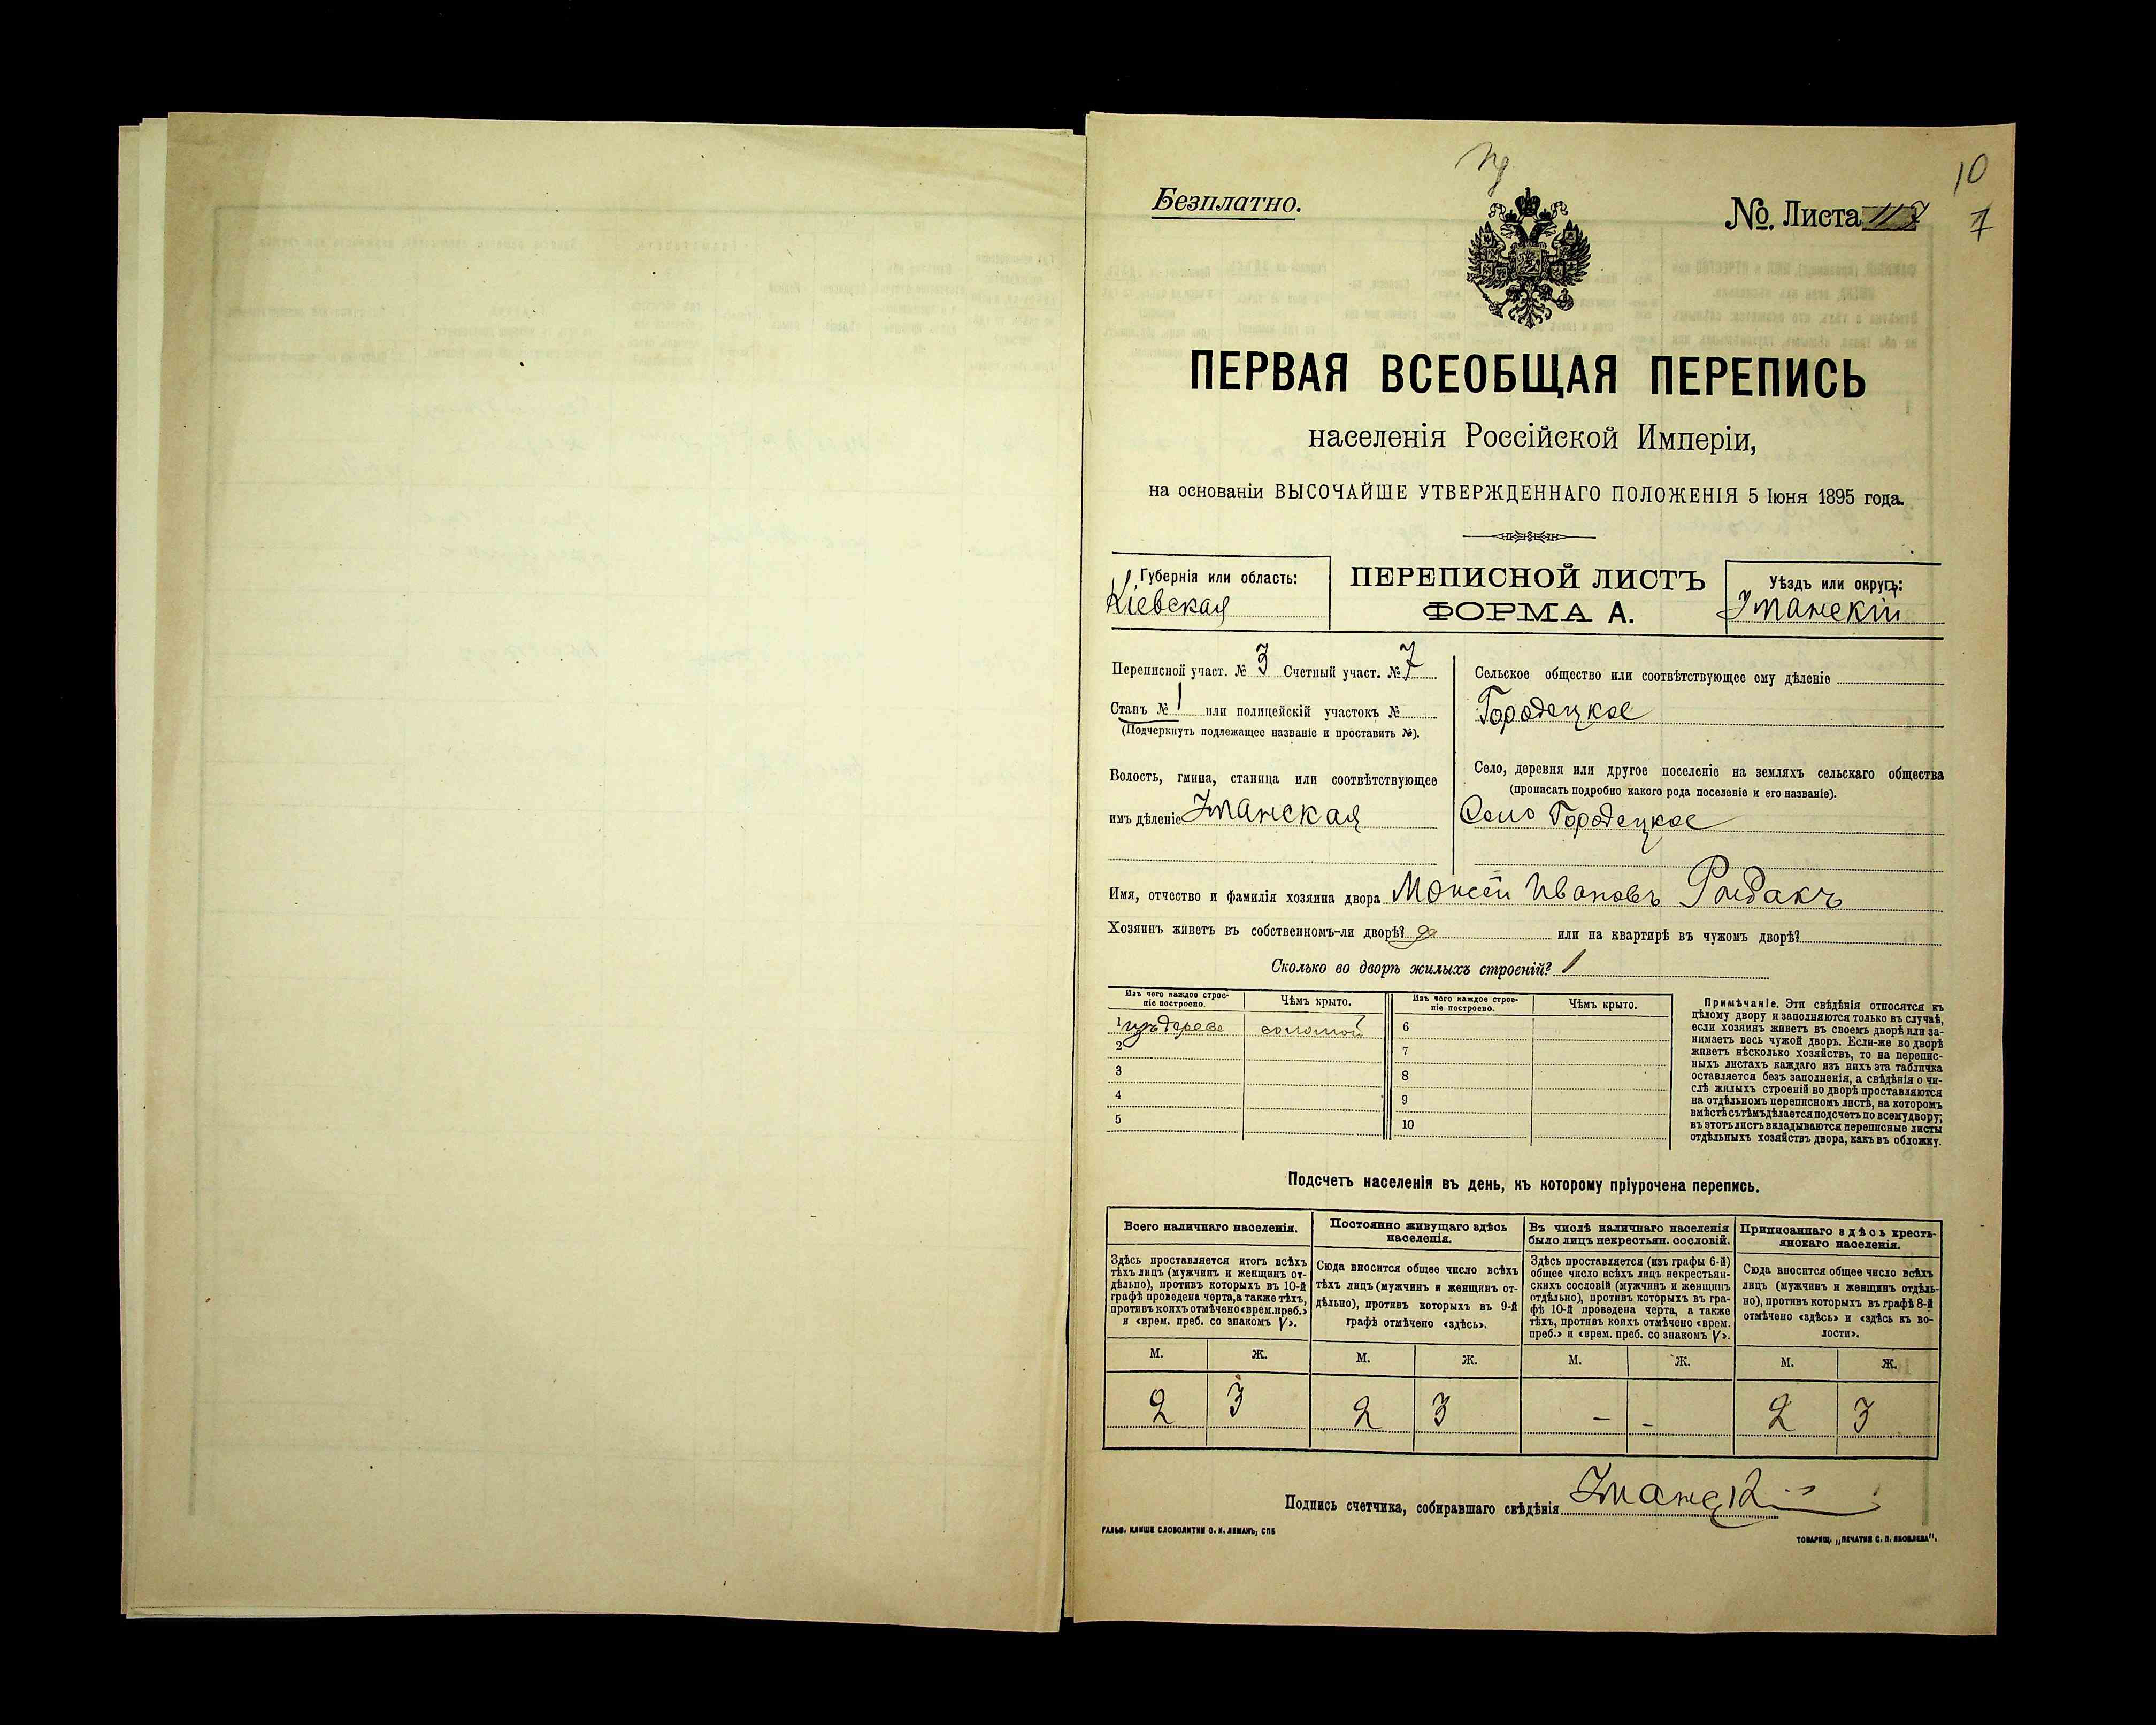 10
Безплатно.
№. Листа 7
ПЕРВАЯ ВСЕОБЩАЯ ПЕРЕПИСЬ
населенія Россійской Имперіи,
на основаніи ВЫСОЧАЙШЕ УТВЕРЖДЕННАГО ПОЛОЖЕНІЯ 5 Іюня 1895 года.
Губернія или область:
Кіевская
ПЕРЕПИСНОЙ ЛИСТЪ
ФОРМА А.
Уѣздъ или округъ:
Уманскій
Переписной участ. № 3 Счетный участ. № 7
Станъ № 1 или полицейскій участокъ №
(Подчеркнуть подлежащее названіе и проставить №).
Волость, гмина, станица или соотвѣтствующее
имъ дѣленіе Уманская
Сельское общество или соотвѣтствующее ему дѣленіе
Городецкое
Село, деревня или другое поселеніе на земляхъ сельскаго общества
(прописать подробно какого рода поселеніе и его названіе).
Село Городецкое
Имя, отчество и фамилія хозяина двора Моисей Ивановъ
Хозяинъ живетъ въ собственномъ-ли дворѣ? да или на квартирѣ въ чужомъ дворѣ?
Сколько во дворѣ жилыхъ строеній? 1
Изъ чего каждое строе-
ніе построено.
Чѣмъ крыто.
Изъ чего каждое строе-
ніе построено.
Чѣмъ крыто.
1 изъ дерева соломой 6
2 7
3 8
4 9
5 10
Примѣчаніе. Эти свѣдѣнія относятся къ
цѣлому двору и заполняются только въ случаѣ,
если хозяинъ живетъ въ своемъ дворѣ или за-
нимаетъ весь чужой дворъ. Если-же во дворѣ
живетъ нѣсколько хозяйствъ, то на перепис-
ныхъ листахъ каждаго изъ нихъ эта табличка
оставляется безъ заполненія, а свѣдѣнія о чи-
слѣ жилыхъ строеній во дворѣ проставляются
на отдѣльномъ переписномъ листѣ, на которомъ
вмѣстѣ съ тѣмъ дѣлается подсчетъ по всему двору;
въ этотъ листъ вкладываются переписные листы
отдѣльныхъ хозяйствъ двора, какъ въ обложку.
Подсчетъ населенія въ день, къ которому пріурочена перепись.
Всего наличнаго населенія.
Здѣсь проставляется итогъ всѣхъ
тѣхъ лицъ (мужчинъ и женщинъ от-
дѣльно), противъ которыхъ въ 10-й
графѣ проведена черта, а также тѣхъ,
противъ коихъ отмѣчено «врем. преб.»
и «врем. преб. со знакомъ V».
Постоянно живущаго здѣсь
населенія.
Сюда вносится общее число всѣхъ
тѣхъ лицъ (мужчинъ и женщинъ от-
дѣльно), противъ которыхъ въ 9-й
графѣ отмѣчено «здѣсь».
Въ числѣ наличнаго населенія
было лицъ некрестьян. сословій.
Здѣсь проставляется (изъ графы 6-й)
общее число всѣхъ лицъ некрестьян-
скихъ сословій (мужчинъ и женщинъ
отдѣльно), противъ которыхъ въ гра-
фѣ 10-й проведена черта, а также
тѣхъ, противъ коихъ отмѣчено «врем.
преб.» и «врем. преб. со знакомъ V».
Приписаннаго здѣсь кресть-
янскаго населенія.
Сюда вносится общее число всѣхъ
лицъ (мужчинъ и женщинъ отдѣль-
но), противъ которыхъ въ графѣ 8-й
отмѣчено «здѣсь» и «здѣсь къ во-
лости».
М. Ж. М. Ж. М. Ж. М. Ж.
2 3 2 3 – – 2 3
Подпись счетчика, собиравшаго свѣдѣнія
ГАЛЬВ. КЛИШЕ СЛОВОЛИТНИ О. И. ЛЕМАНЪ, СПБ
ТОВАРИЩ. „ПЕЧАТНЯ С. П. ЯКОВЛЕВА".